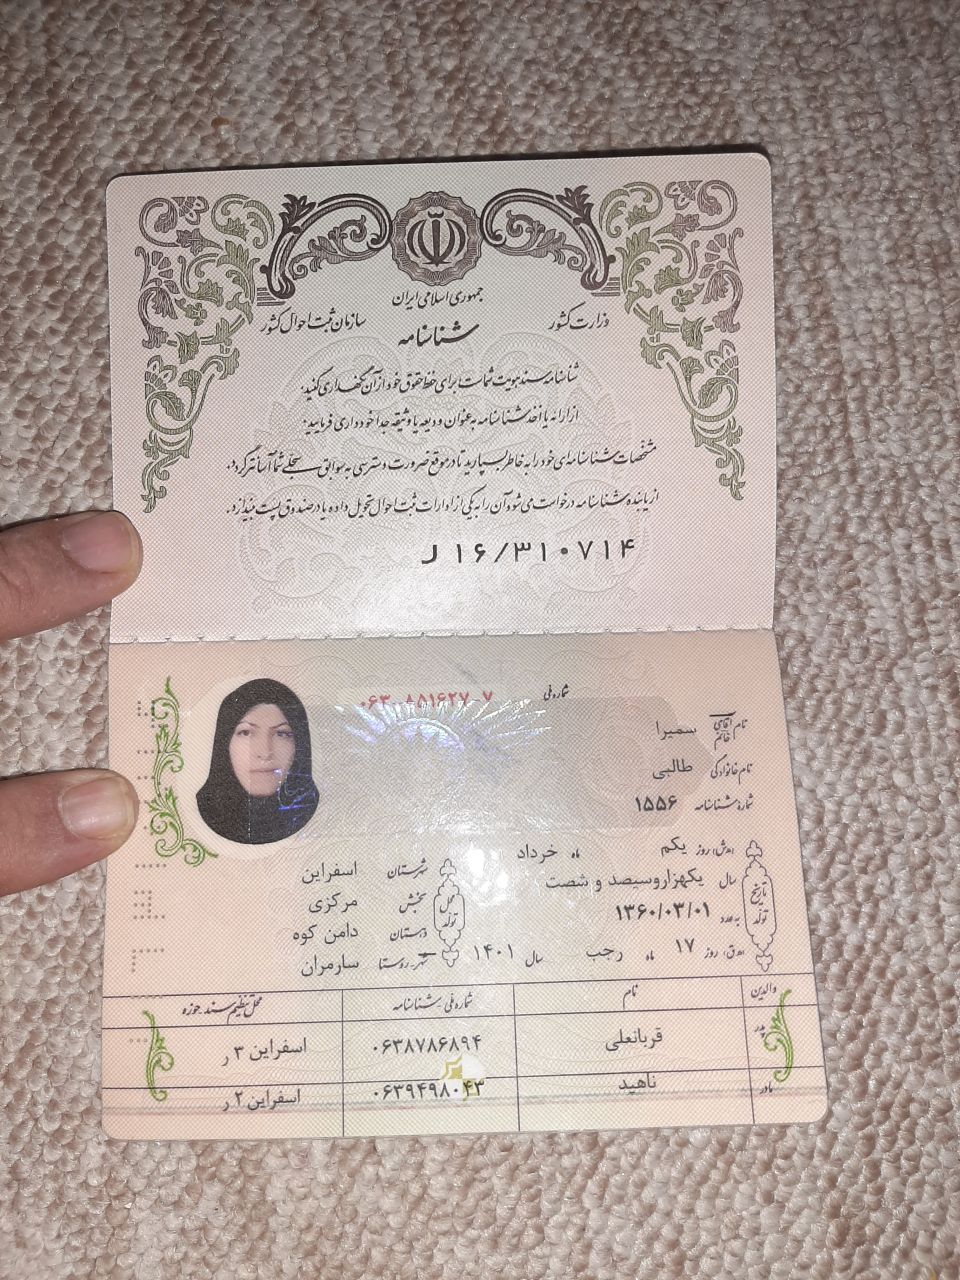 جمهوری اسلامی ایران
وزارت کشور
سازمان ثبت احوال کشور
شناسنامه
شناسنامه سند هویت شماست برای حفظ حقوق خود از آن نگهداری کنید.
از ارائه یا اخذ شناسنامه به عنوان ودیعه یا وثیقه جدا خودداری فرمایید.
مشخصات شناسنامه‌ای خود را به خاطر بسپارید تا در موقع ضرورت دسترسی به سوابق سجلی شما آسانتر گردد.
از یابنده شناسنامه درخواست می شود آن را به یکی از ادارات ثبت احوال تحویل داده یا در صندوق پست بیندازد.
ل ۱۶/۳۱۰۷۱۴
شماره ملی ۰۶۳-۸۵۱۶۲۷-۷
نام آقای خانم سمیرا
نام خانوادگی طالبی
شماره شناسنامه ۱۵۵۶
تاریخ تولد
(ه.ش) روز یکم ماه خرداد
سال یکهزاروسیصد و شصت
به عدد ۱۳۶۰/۰۳/۰۱
(ه.ق) روز ۱۷ ماه رجب سال ۱۴۰۱
محل تولد
شهرستان اسفراین
بخش مرکزی
دهستان دامن کوه
شهر-روستا سارمران
والدین نام شماره ملی - شناسنامه محل تنظیم سند - حوزه
پدر قربانعلی ۰۶۳۸۷۸۶۸۹۴ اسفراین ۳ ر
مادر ناهید ۰۶۳۹۴۹۸۰۴۳ اسفراین ۲ ر